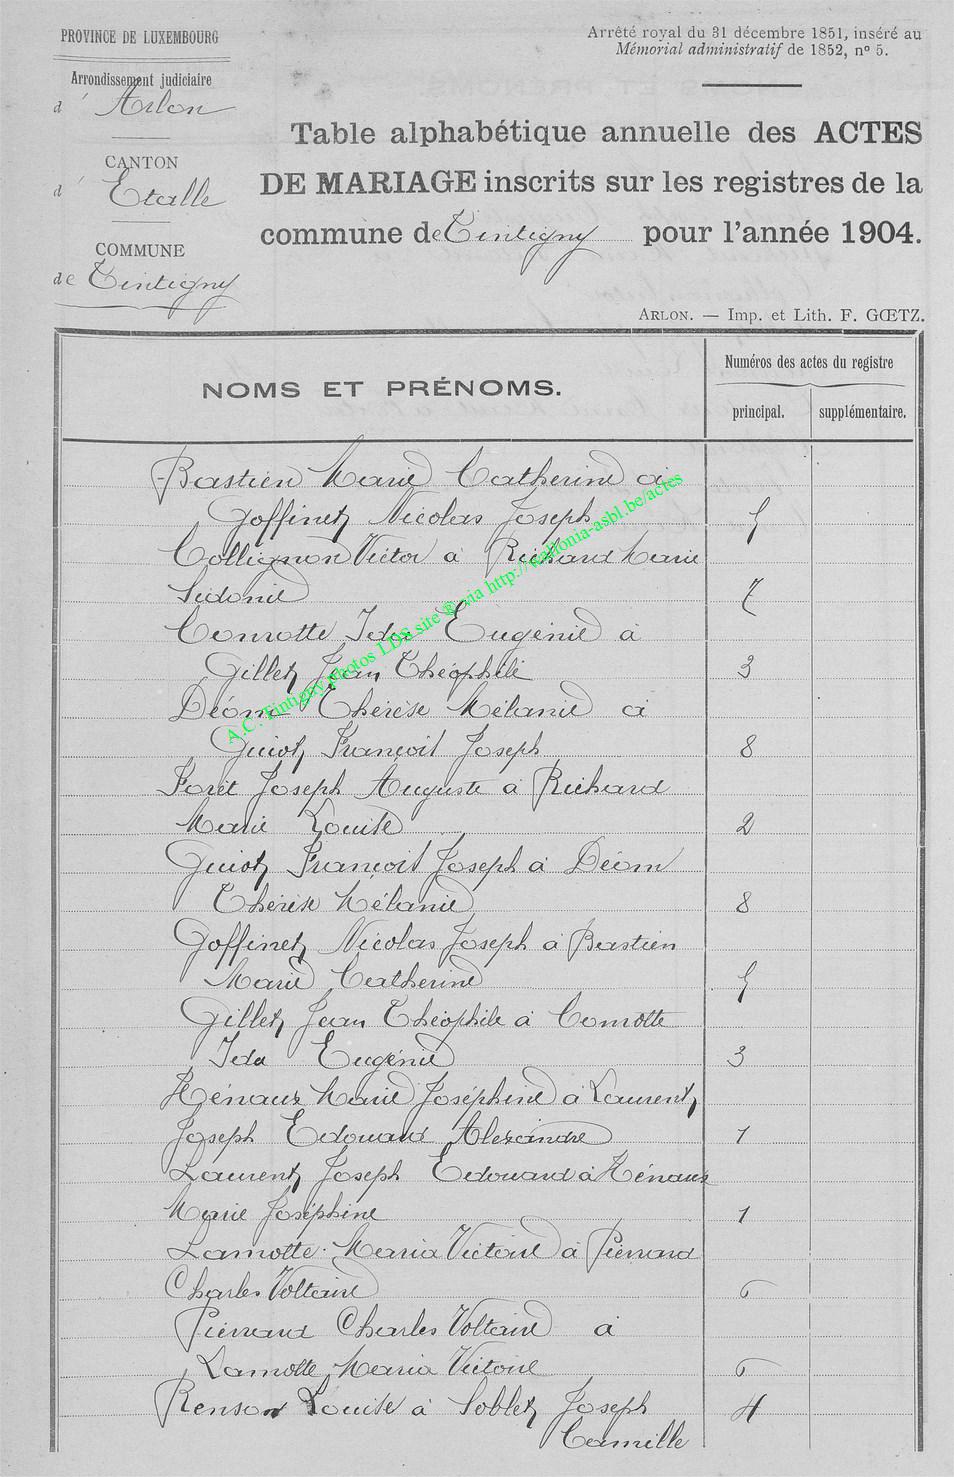 PROVINCE DE LUXEMBOURG
Arrondissement judiciaire
d' Arlon
CANTON
d' Etalle
COMMUNE
de Tintigny
Arrêté royal du 31 décembre 1851, inséré au
Mémorial administratif de 1852, nº 5.
Table alphabétique annuelle des ACTES
DE MARIAGE inscrits sur les registres de la
commune de Tintigny pour l'année 1904.
ARLON. — Imp. et Lith. F. GŒTZ.
NOMS ET PRÉNOMS.
Numéros des actes du registre
principal. supplémentaire.
Bastien Marie Catherine à
Goffinet Nicolas Joseph 5
Collignon Victor à Richard Marie
Sidonie 7
Comotte Ida Eugénie à
Gillet Jean Théophile 3
Déom Thérèse Mélanie à
Guiot François Joseph 8
Foret Joseph Auguste à Richard
Marie Louise 2
Guiot François Joseph à Déom
Thérèse Mélanie 8
Goffinet Nicolas Joseph à Bastien
Marie Catherine 5
Gillet Jean Théophile à Comotte
Ida Eugénie 3
Hénaux Marie Joséphine à Laurent
Joseph Edouard Alexandre 1
Laurent Joseph Edouard à Hénaux
Marie Joséphine 1
Lamotte Maria Victoire à Pierrard
Charles Voltaire 6
Pierrard Charles Voltaire à
Lamotte Maria Victoire 6
Renson Louise à Soblet Joseph 4
Camille
A.C. Tintigny photos LDS site ® via http://wallonia-asbl.be/actes